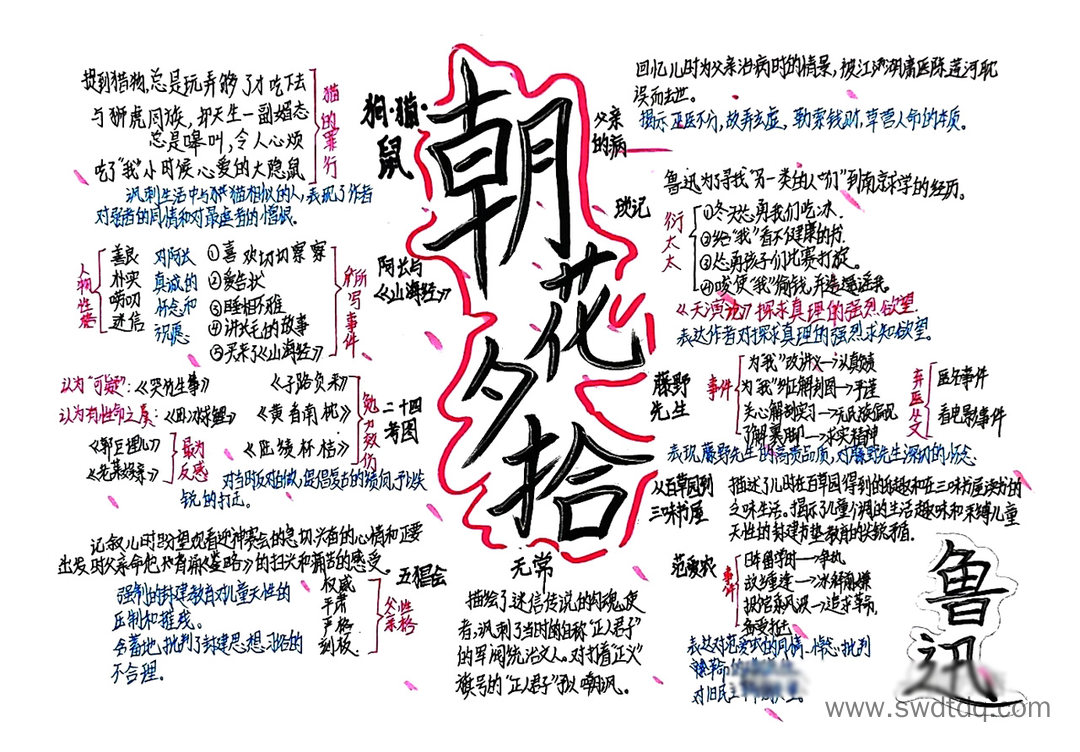 朝花夕拾
鲁迅
狗·猫·鼠
猫的罪行
捉到猎物,总是玩弄够了才吃下去
与狮虎同族,却天生一副媚态
总是嗥叫,令人心烦
吃了“我”小时候心爱的大隐鼠
讽刺生活中与猫相似的人,表现了作者
对弱者的同情和对暴虐者的憎恨.
阿长与
《山海经》
所写事件
①喜欢切切察察
②爱告状
③睡相不雅
④讲长毛的故事
⑤买来了《山海经》
对阿长
真诚的
怀念和
祝愿
人物性格
善良
朴实
唠叨
迷信
二十四
孝图
勉力效仿
《子路负米》
《黄香扇枕》
《陆绩怀桔》
认为“可疑”:《哭竹生笋》
认为有性命之虞:《卧冰求鲤》
《郭巨埋儿》
《老莱娱亲》
最为
反感
锐的抨击.
五猖会
记叙儿时盼望观看迎神赛会的急切兴奋的心情和正要
出发时父亲他背诵《鉴略》的扫兴和痛苦的感受。
父亲
性格
权威
严肃
严格
刻板
强制的封建教育对儿童天性的
压制和摧残。
含蓄地批判了封建思想习俗的
不合理.
无常
描绘了迷信传说的勾魂使
者,讽刺了当时的自称“正人君子”
的军阀统治文人。对打着正义
旗号的“正人君子”予以嘲讽。
父亲
的病
回忆儿时为父亲治病时的情景,被江湖庸医陈莲河耽
误而去世.
揭示巫医不分,故弄玄虚,勒索钱财,草菅人命的本质.
琐记
鲁迅为了寻找“另一类的人们”到南京求学的经历.
衍太太
①冬天怂勇我们吃冰.
②给“我”看不健康的书
③怂勇孩子们比赛打旋.
④唆使“我”偷钱,并造谣诬我.
《天演论》探求真理的强烈欲望.
表达作者对探求真理的强烈求知欲望.
藤野
先生
事件
为“我”改讲义→认真负责
为“我”纠正解剖图→
关心解剖实习→
了解裹脚→求实精神
弃医从文
匿名信事件
看电影事件
表现藤野先生的高贵品质,对藤野先生深切的怀念.
从百草园到
三味书屋
描述了儿时在百草园得到的乐趣和在三味书屋读书的
乏味生活。揭示了儿童广阔的生活趣味和束缚儿童
天性的封建书塾教育的尖锐矛盾.
范爱农
事件
日本留学时→争执
故乡重逢→冰释前嫌
报馆案风波→
备受打击
表达对范爱农的同情、悼念,批判
对旧民主
www.swdtdq.com